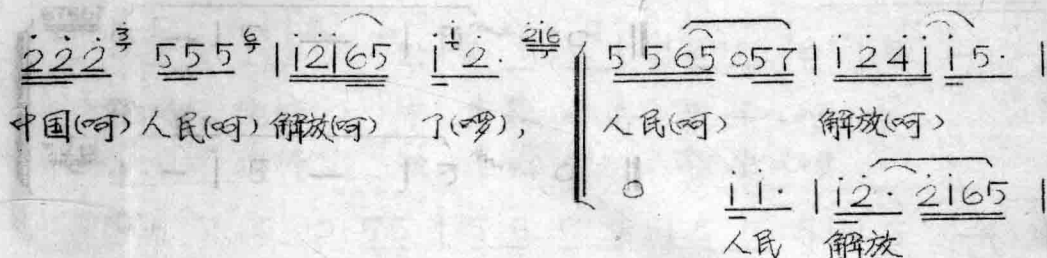 2 2 2 3 5 5 5 6 | i 2 i 6 5 i i 2· 2i6 5 5 6 5 0 5 7 | i 2 4 i i 5· |
中国(呵) 人民(呵) 解放(呵) 了(啰), 人民(呵) 解放(呵)
0 i i· | i 2· 2 i 6 5 |
人民 解放